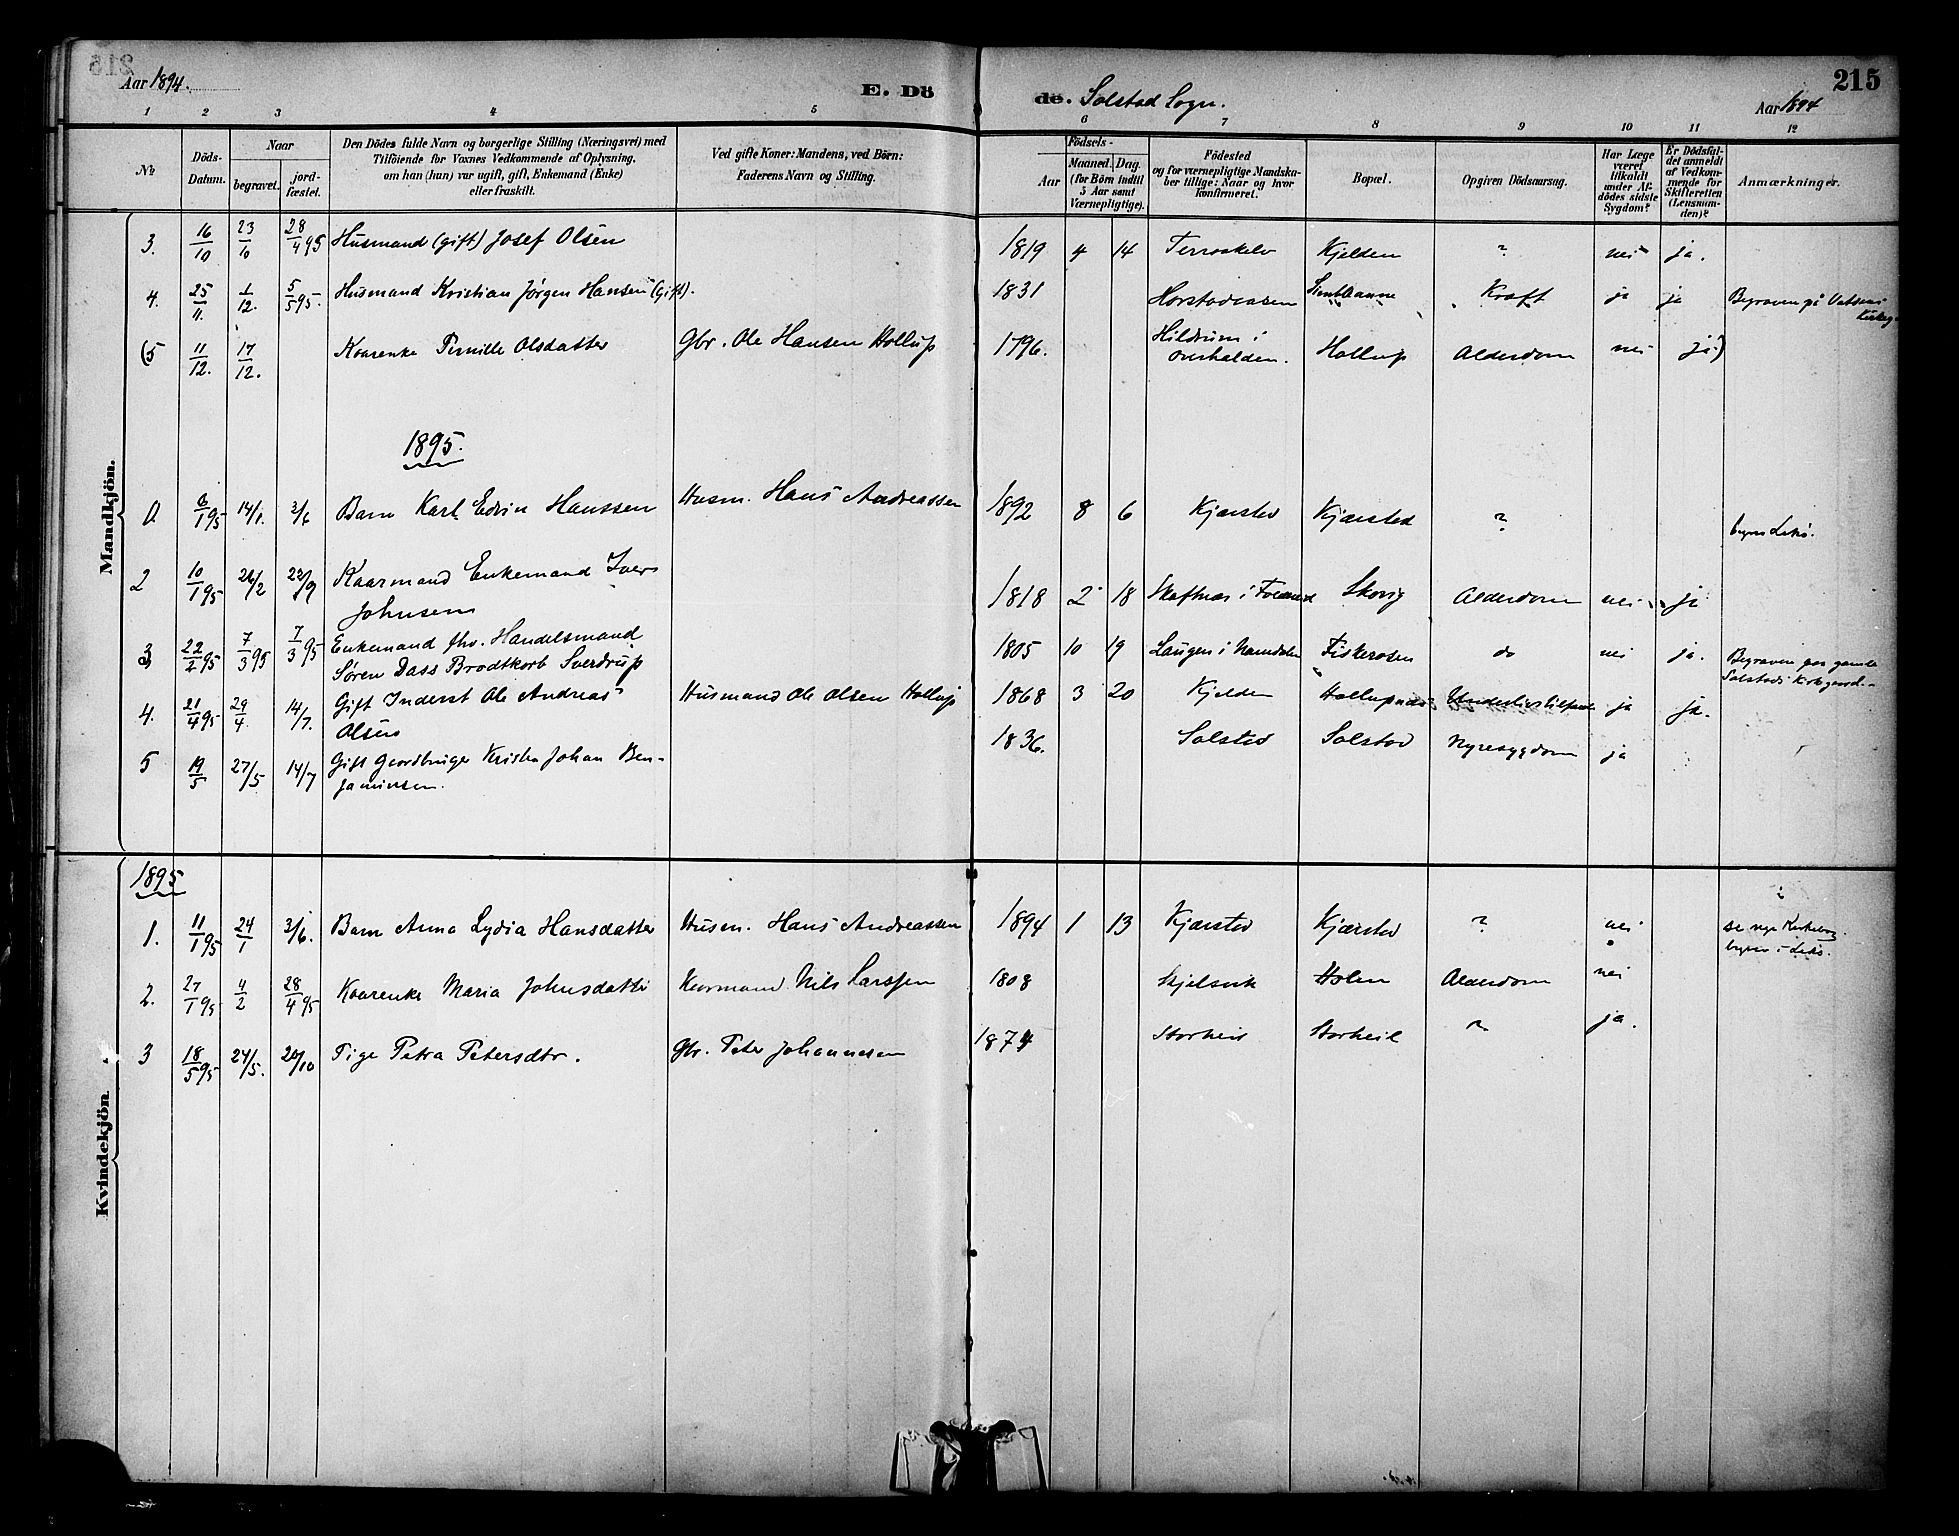 215
Aar 1894.
E. Dö
de. Solstad Sogn.
Aar 1894
1 2 3 4 5 6 7 8 9 10 11 12
№
Döds-
Datum.
Naar
begravet.
jord-
fæstet.
Den Dödes fulde Navn og borgerlige Stilling (Næringsvei) med
Tilföiende for Voxnes Vedkommende af Oplysning,
om han (hun) var ugift, gift, Enkemand (Enke)
eller fraskilt.
Ved gifte Koner: Mandens, ved Börn:
Faderens Navn og Stilling.
Födsels-
Aar
Maaned. Dag.
(for Börn indtil
5 Aar samt
Værnepligtige).
Födested
og for værnepligtige Mandska-
ber tillige: Naar og hvor
konfirmeret.
Bopæl.
Opgiven Dödsaarsag.
Har Læge
været
tilkaldt
under Af-
dödes sidste
Sygdom?
Er Dödsfal-
det anmeldt
af Vedkom-
mende for
Skifteretten
(Lensman-
den)?
Anmærkninger.
Mandkjön.
3. 16/10 23/10 28/4 95 Husmand (gift) Josef Olsen 1819 4 14 Terraskelv Kjelden ? nei ja.
4. 25/11. 1/12. 5/5 95. Husmand Kristian Jørgen Hansen (gift). 1831 Horstadaasen Kræft ja ja Begraven på Vatsaas
Kirkeg
(5 11/12. 17/12. Kaarenke Pernille Olsdatter Gbr. Ole Hansen Hollup 1796. Hildrum i
Overhalden. Hollup Alderdom nei ja)
1895.
1. 8/1 95 14/1. 3/6 Barn Karl Edvin Hanssen Husm. Hans Andreassen 1892 8 6 Kjærstad Kjærstad ?
2 10/1 95 26/2 22/9 Kaarmand Enkemand Iver
Johnsen 1818 2 18 Skafnæs i Foldereid Skovig Alderdom nei ja
3 22/2 95 7/3 95 7/3 95 Enkemand fhv. Handelsmand
Søren Dass Brodtkorb Sverdrup 1805 10 19 Laugen i Namdalen Fiskerosen do nei ja. Begraven paa gamle
Solstads Kirkegaard.-
4. 21/4 95 29/4. 14/7. Gift Inderst Ole Andreas
Olsen Husmand Ole Olsen Hollup 1868 3 20 Kjelden ja ja.
5 19/5 27/5 14/7 Gift Gaardbruger Kristen Johan Ben-
jaminsen. 1836. Solstad Solstad Nyresygdom ja
Kvindekjön.
1895
1. 11/1 95 24/1 3/6. Barn Anna Lydia Hansdatter Husm. Hans Andreassen 1894 1 13 Kjærstad Kjærstad ? nei se nye Kirkebog.
2. 27/1 95 4/2 28/4 95 Kaarenke Maria Johnsdatter Kaarmand Nils Larssen 1808 Skjelsvik Holen Alderdom nei
3 18/5 95 24/5. 20/10 Pige Petra Petersdtr. Gbr. Peter Johannesen 1874 Storheil Storheil ? ja.